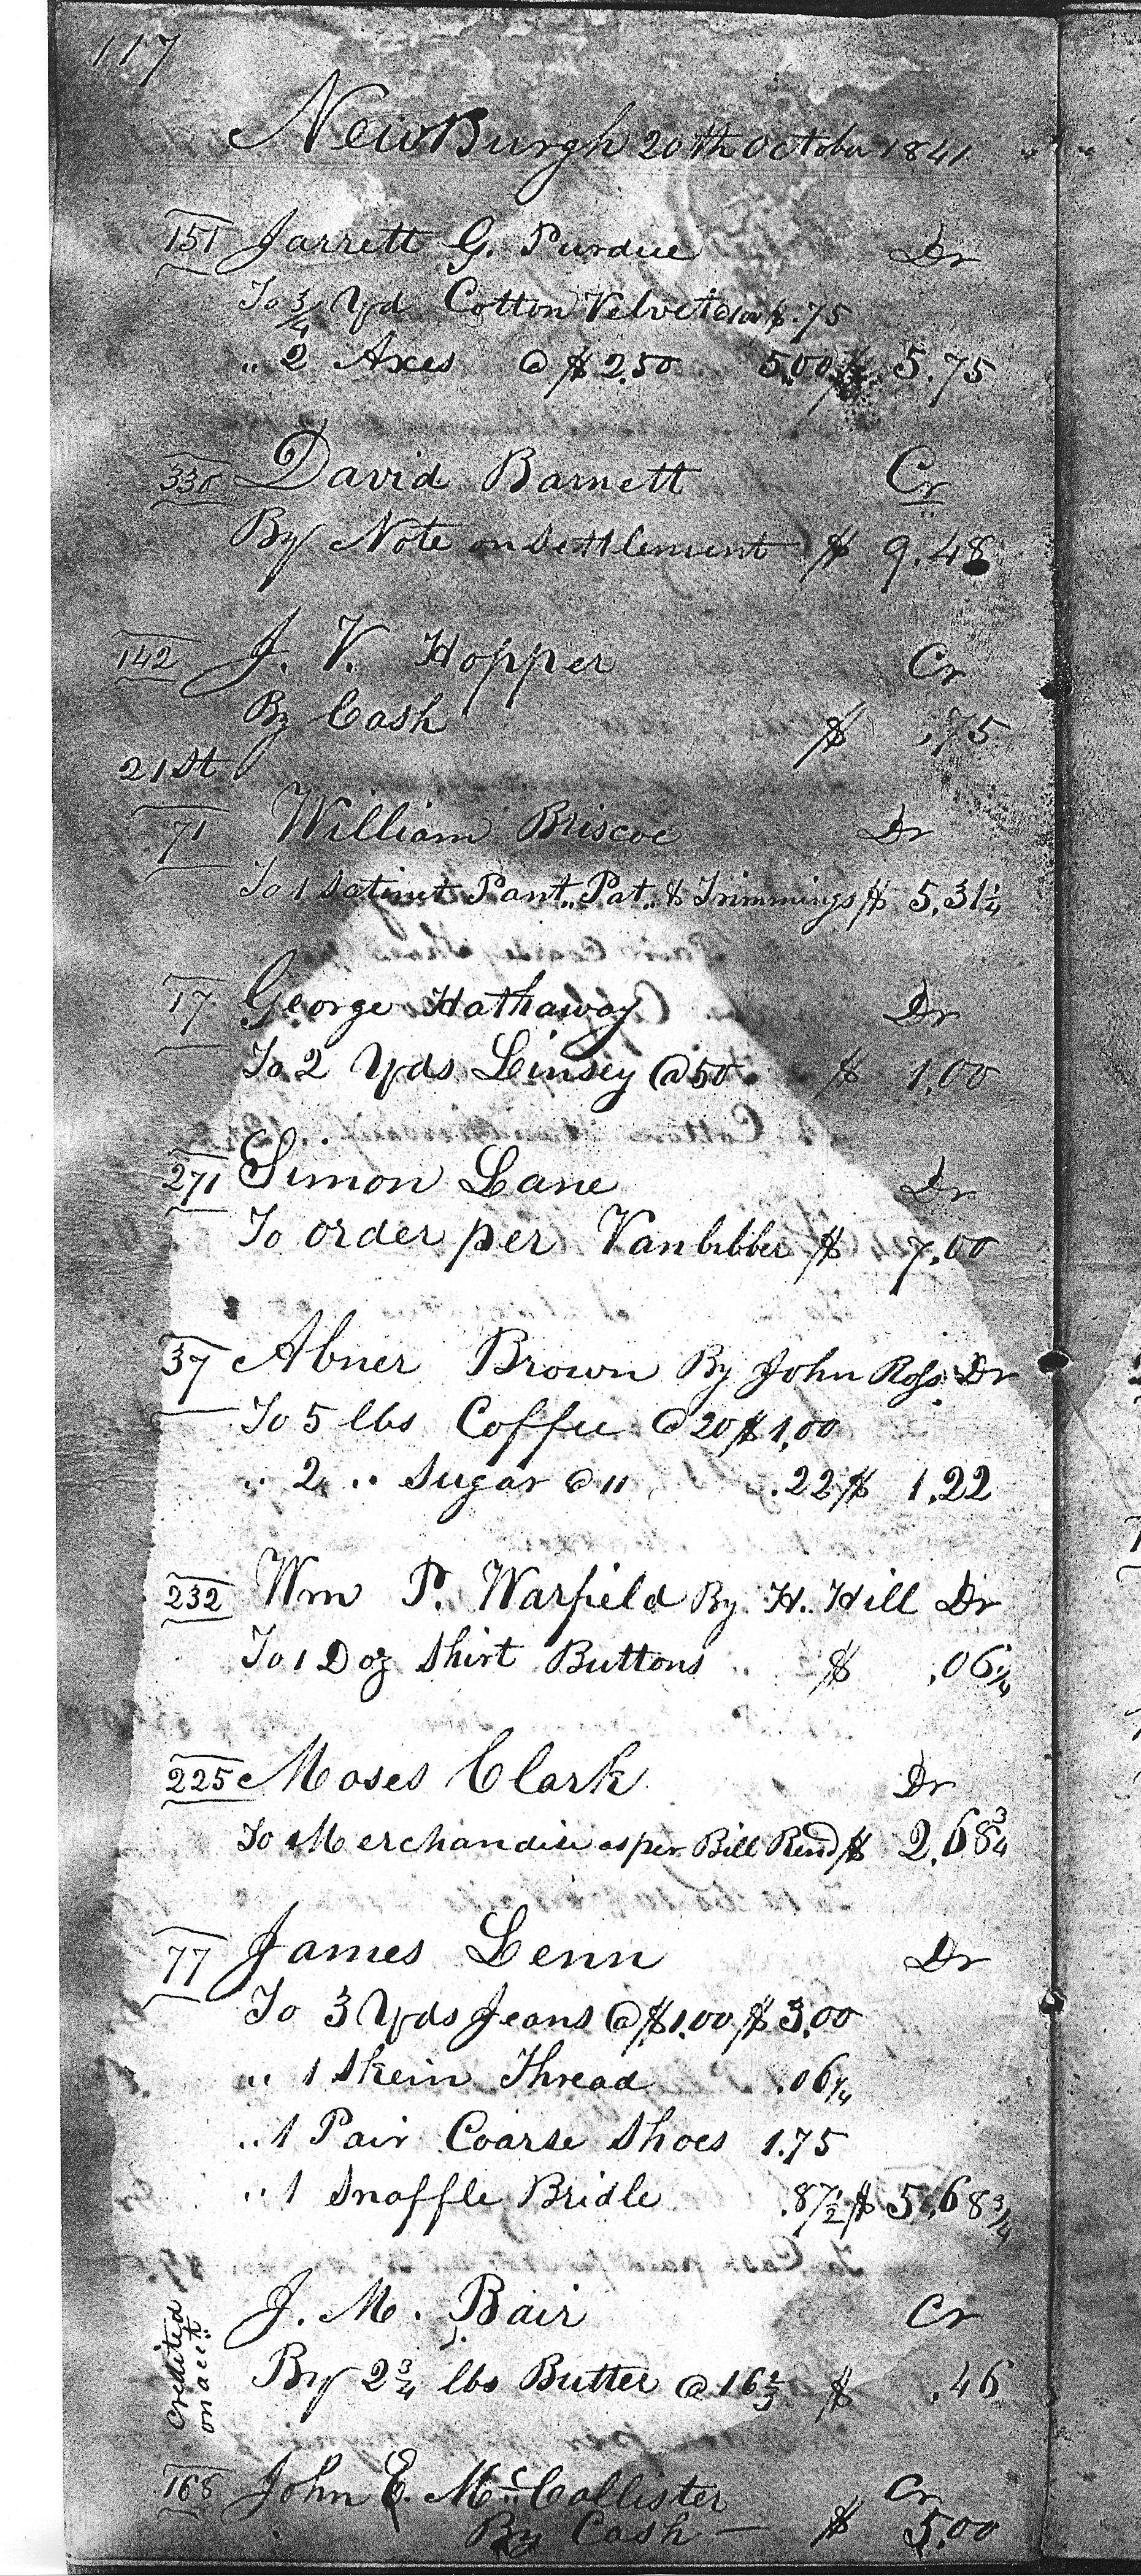 117
NewBurgh 20th October 1841
151 Jarrett G. Purdue Dr
To 3/4 Yd Cotton Velvet $.75
" 2 Axes @ $2.50 5.00 $ 5.75
330 David Barnett Cr
By Note on Settlement $ 9.48
142 J. V. Hopper Cr
By Cash $ .75
21st
71 William Briscoe Dr
To 1 Satinet Pant.. Pat.. & Trimmings $ 5.31 1/4
17 George Hathaway Dr
To 2 Yds Linsey @ 50 $ 1.00
271 Simon Lane Dr
To order per Vanbibber $ 7.00
37 Abner Brown By John Ross Dr
To 5 lbs Coffee @ 20 $ 1.00
" 2 " Sugar @ 11 .22 $ 1.22
232 Wm P. Warfield By H. Hill Dr
To 1 Doz Shirt Buttons $ .06 1/4
225 Moses Clark Dr
To Merchandise as per Bill Rend $ 2.68 3/4
77 James Lenn Dr
To 3 Yds Jeans @ $1.00 $ 3.00
" 1 Skein Thread .06 1/4
" 1 Pair Coarse Shoes 1.75
" 1 Snaffle Bridle .87 1/2 $ 5.68 3/4
Credited on acct
J. M. Bair Cr
By 2 3/4 lbs Butter @ 16 2/3 $ .46
168 John E. McCallister Cr
By Cash — $ 5.00